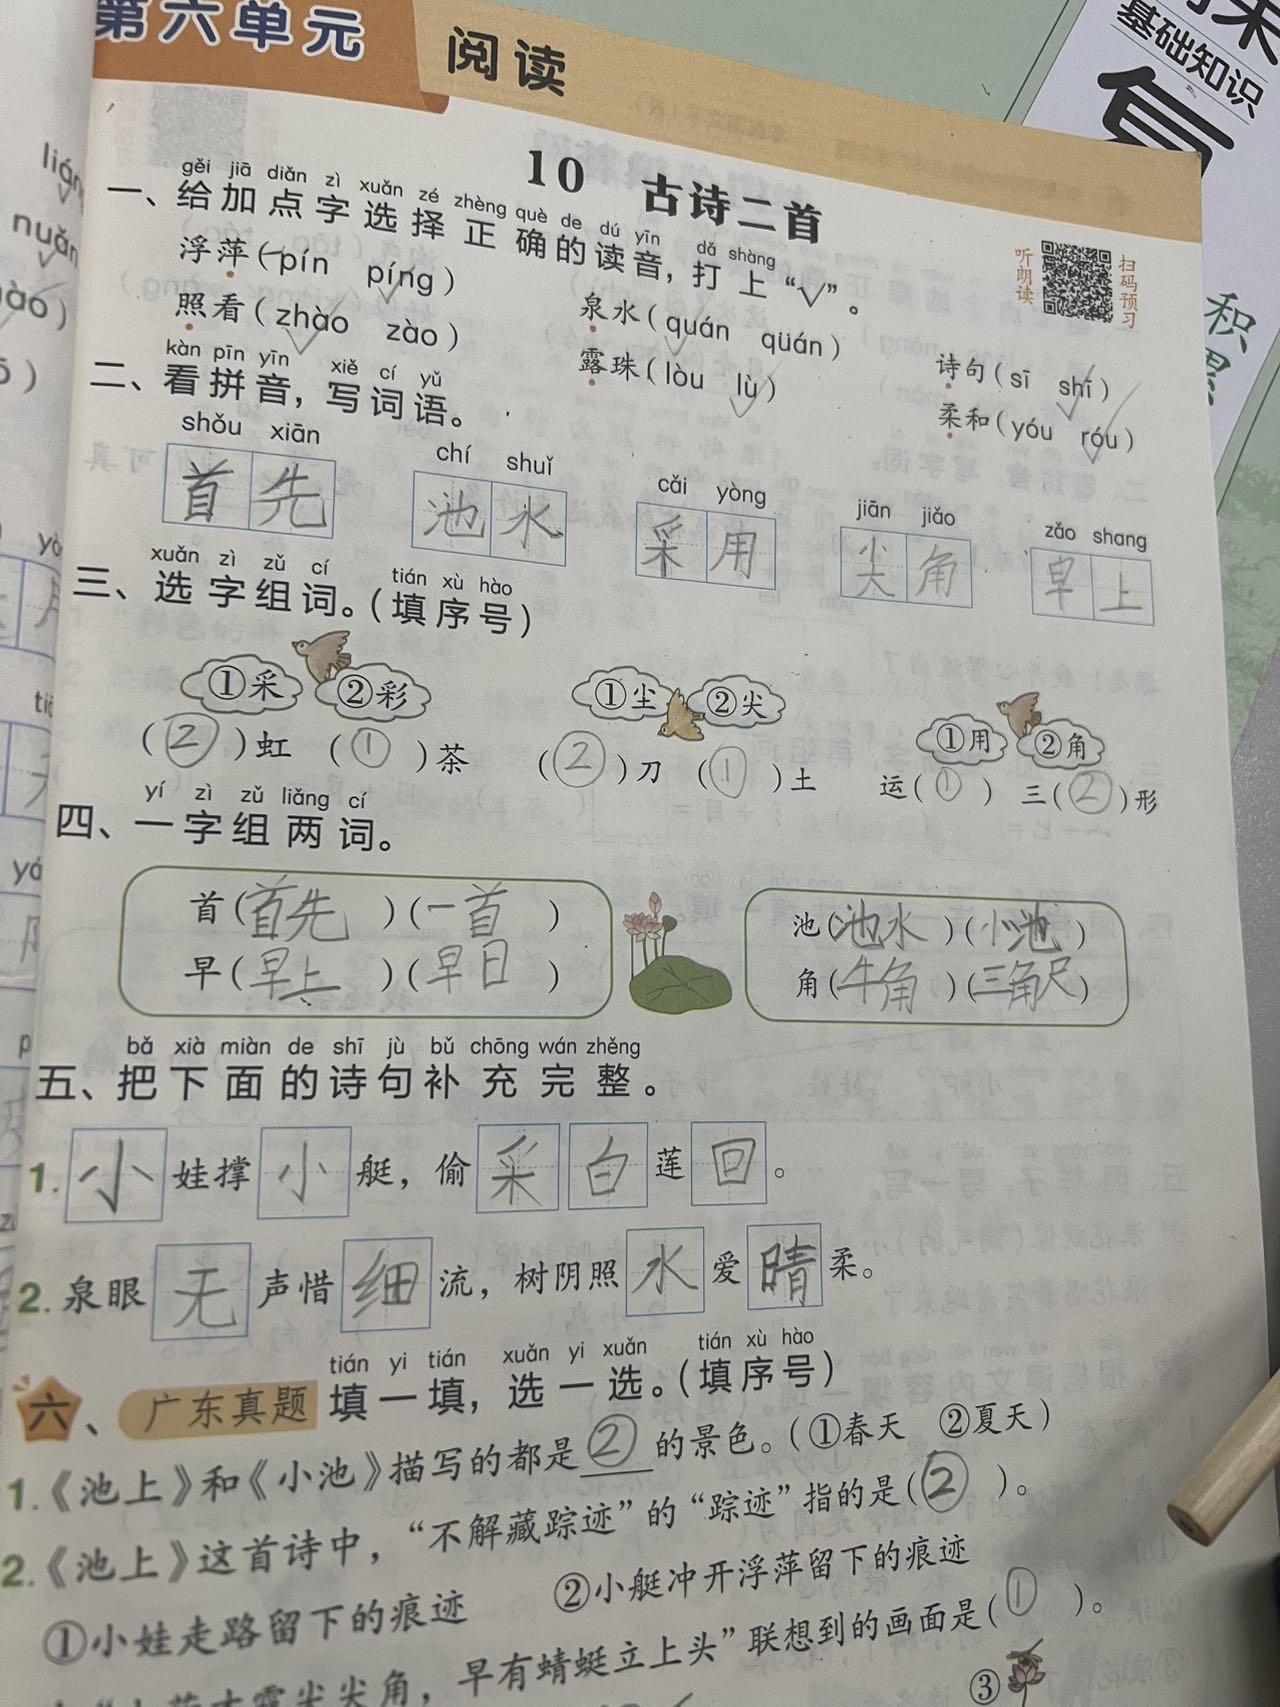 第六单元 阅读
基础知识
10 古诗二首
听朗读 扫码预习
积累
gěi jiā diǎn zì xuǎn zé zhèng què de dú yīn dǎ shàng
一、给加点字选择正确的读音，打上“√”。
浮萍(pín píng) 泉水(quán qüán) 诗句(sī shī)
照看(zhào zào) 露珠(lòu lù) 柔和(yóu róu)
kàn pīn yīn xiě cí yǔ
二、看拼音，写词语。
shǒu xiān chí shuǐ cǎi yòng jiān jiǎo zǎo shang
首先 池水 采用 尖角 早上
xuǎn zì zǔ cí tián xù hào
三、选字组词。(填序号)
①采 ②彩 ①尘 ②尖 ①用 ②角
(②)虹 (①)茶 (②)刀 (①)土 运(①) 三(②)形
yí zì zǔ liǎng cí
四、一字组两词。
首(首先)(一首) 池(池水)(小池)
早(早上)(早日) 角(牛角)(三角尺)
bǎ xià miàn de shī jù bǔ chōng wán zhěng
五、把下面的诗句补充完整。
1. 小娃撑小艇，偷采白莲回。
2. 泉眼无声惜细流，树阴照水爱晴柔。
tián yi tián xuǎn yi xuǎn tián xù hào
六、广东真题 填一填，选一选。(填序号)
1.《池上》和《小池》描写的都是②的景色。(①春天 ②夏天)
2.《池上》这首诗中，“不解藏踪迹”的“踪迹”指的是(②)。
①小娃走路留下的痕迹 ②小艇冲开浮萍留下的痕迹
尖尖角，早有蜻蜓立上头”联想到的画面是(①)。
③